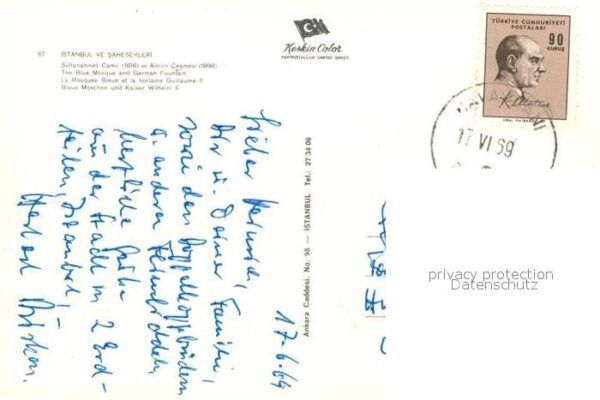 67 ISTANBUL VE ŞAHESERLERİ
Sultanahmet Camii (1616) ve Alman Çeşmesi (1898)
The Blue Mosque and German Fountain
La Mosquee Bleue et la fontaine Guillaume II
Blaue Moschee und Kaiser Wilhelm II
Keskin Color
KARTPOSTALCILIK LIMITED ŞİRKETİ
TÜRKİYE CUMHURİYETİ
POSTALARI
90
KURUŞ
K. Atatürk
17 VI 69
Ankara Caddesi, No. 98 — ISTANBUL Tel.: 27 34 06
17-6-69
Lieber Heinrich,
Dir u. Deiner Familie,
sowie den Doppelkopfbrüdern
u. anderen
herzliche Grüße
aus der Stadt in 2 Erd-
teilen, Istanbul,
Herbert
privacy protection
Datenschutz